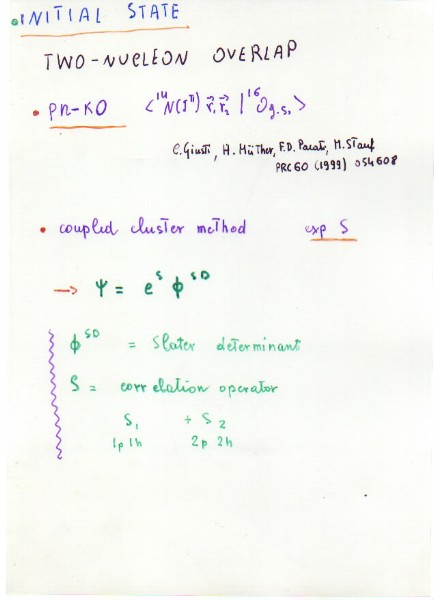 INITIAL STATE
TWO-NUCLEON OVERLAP
• pn-KO <¹⁴N(Jπ) r⃗₁ r⃗₂ | ¹⁶O g.s.>
C. Giusti, H. Müther, F.D. Pacati, M. Stauf
PRC 60 (1999) 054608
• coupled cluster method exp S
→ Ψ = eˢ ϕ^SD
ϕ^SD = Slater determinant
S = correlation operator
S₁ + S₂
1p 1h 2p 2h